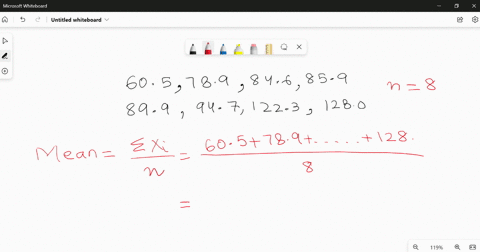 Microsoft Whiteboard
Untitled whiteboard
60.5, 78.9, 84.6, 85.9
89.9, 94.7, 122.3, 128.0
n = 8
Mean = Σxi/n = 60.5+78.9+.....+128./8
=
119%